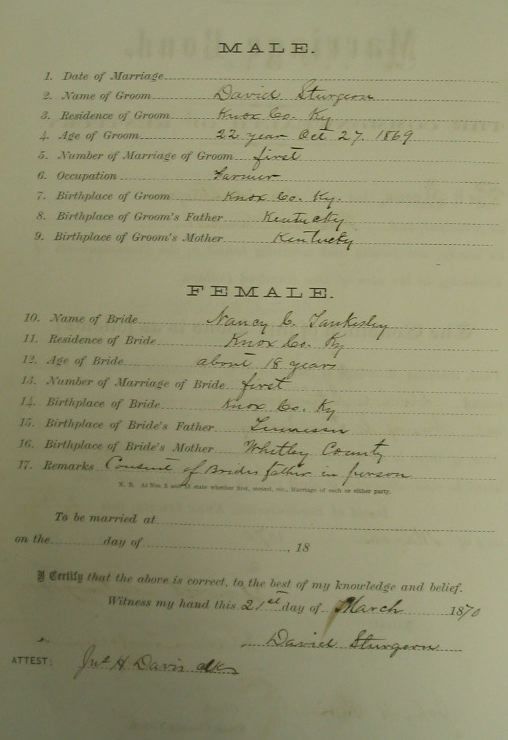 MALE.
1. Date of Marriage
2. Name of Groom David Sturgeon
3. Residence of Groom Knox Co. Ky
4. Age of Groom 22 year Oct 27. 1869
5. Number of Marriage of Groom first
6. Occupation Farmer
7. Birthplace of Groom Knox Co. Ky.
8. Birthplace of Groom's Father Kentucky
9. Birthplace of Groom's Mother Kentucky
FEMALE.
10. Name of Bride Nancy C.
11. Residence of Bride Knox Co. Ky
12. Age of Bride about 18 years
13. Number of Marriage of Bride first
14. Birthplace of Bride Knox Co. Ky
15. Birthplace of Bride's Father
16. Birthplace of Bride's Mother Whitley County
17. Remarks Consent of Brides father in person
N. B. At Nos. 5 and 13 state whether first, second, etc., Marriage of each or either party.
To be married at
on the day of , 18
I Certify that the above is correct, to the best of my knowledge and belief.
Witness my hand this 21st day of March 1870
David Sturgeon
ATTEST: Jno H Davis clk